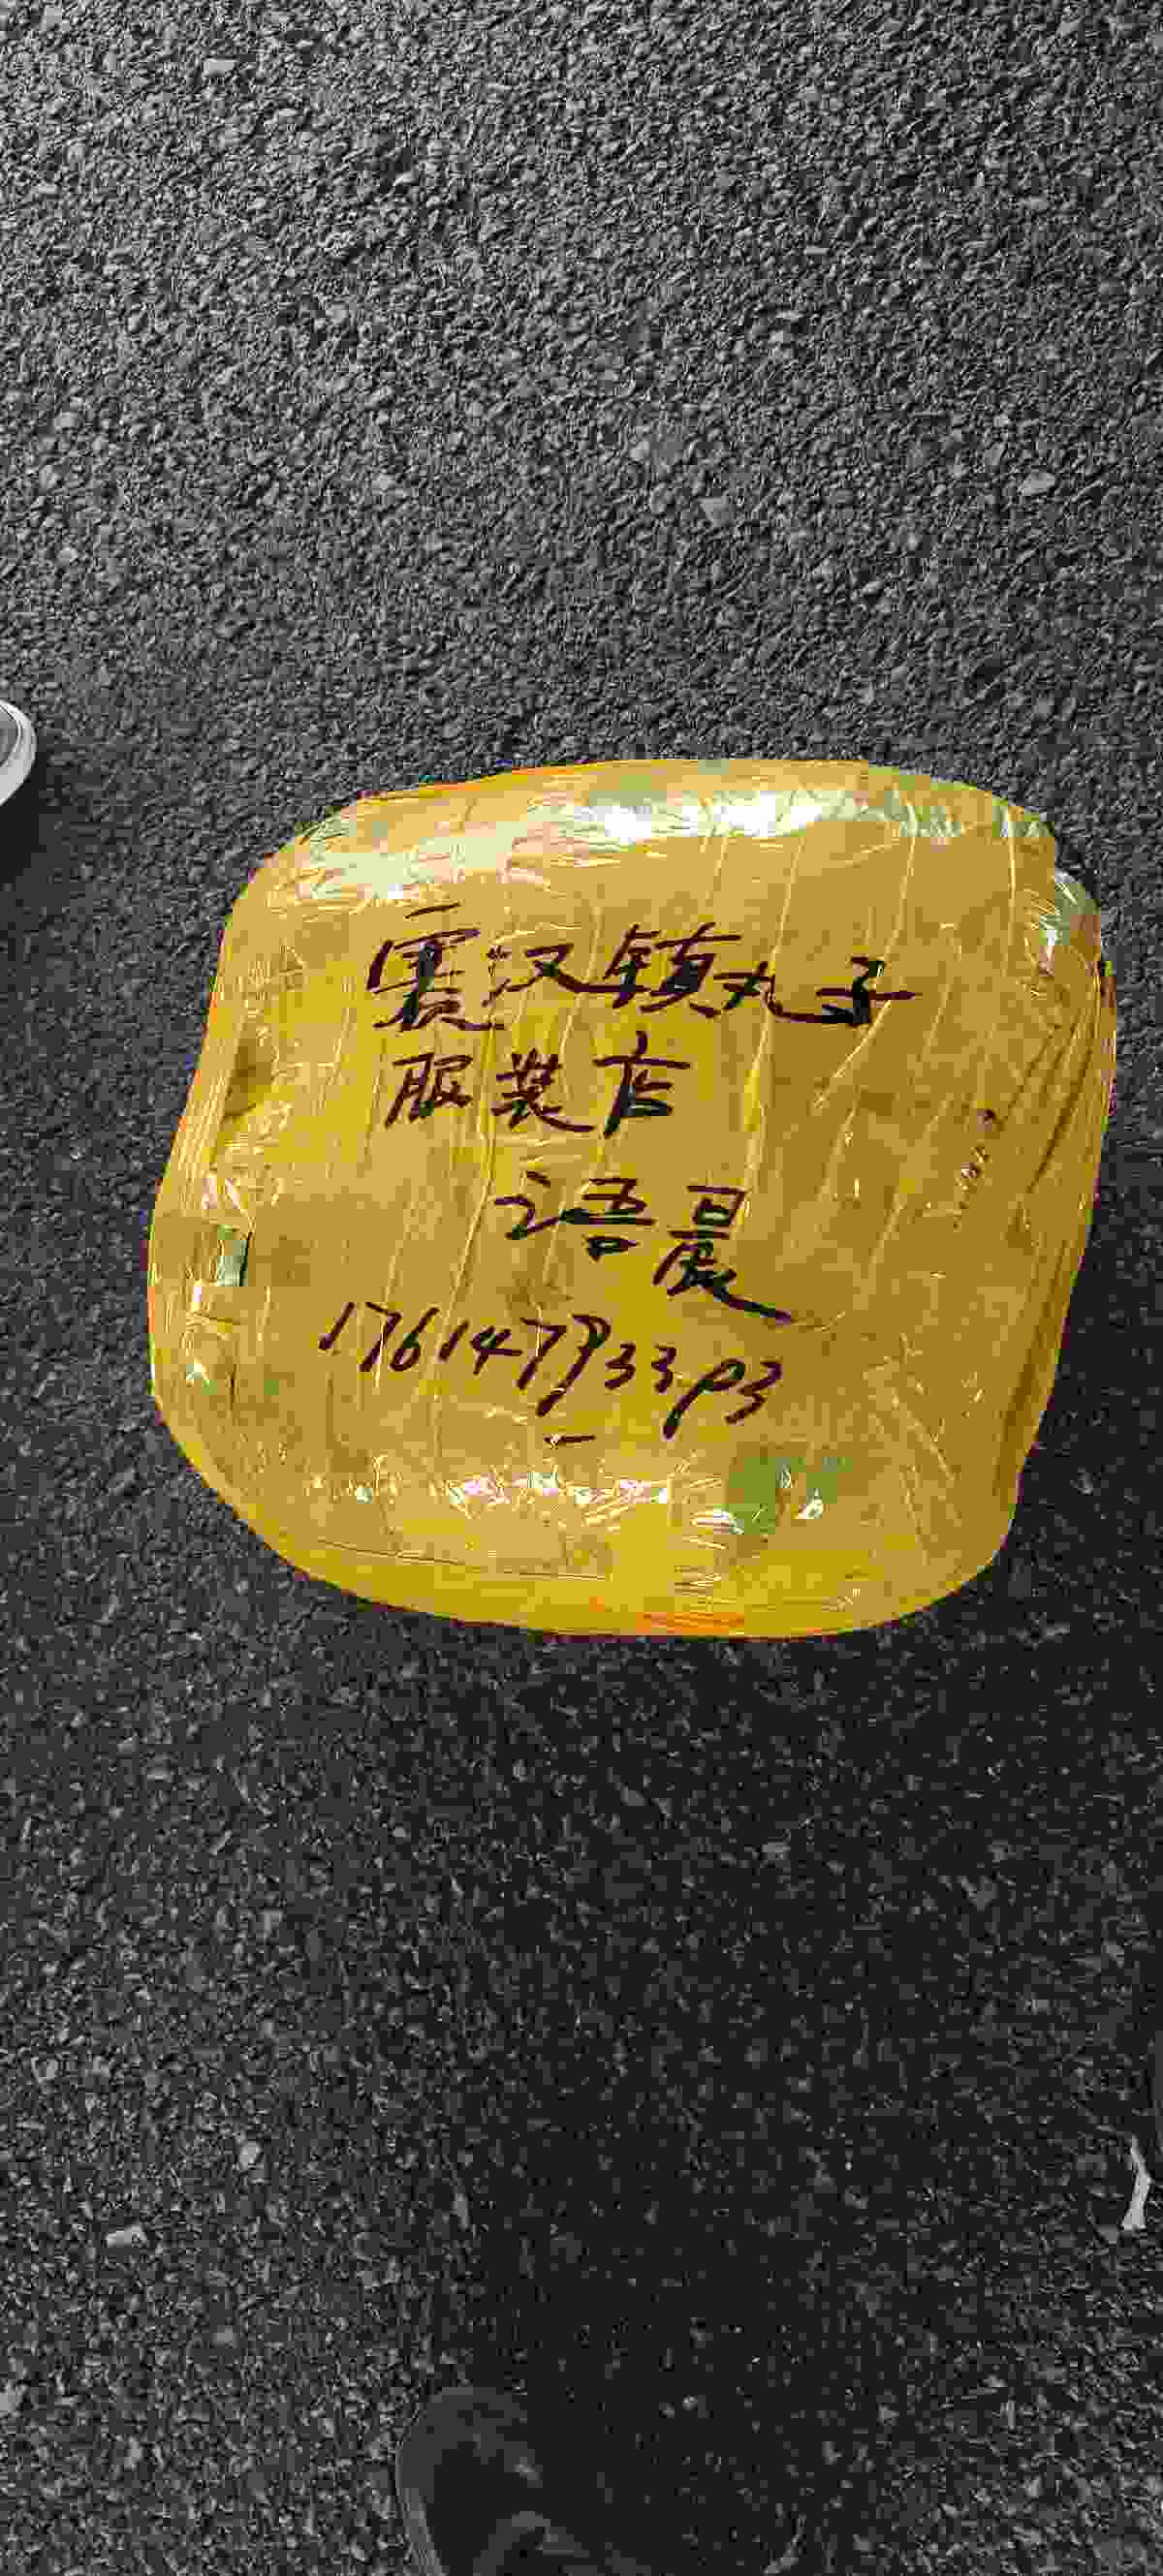 震汉镇丸子
服装店
语晨
17614793393